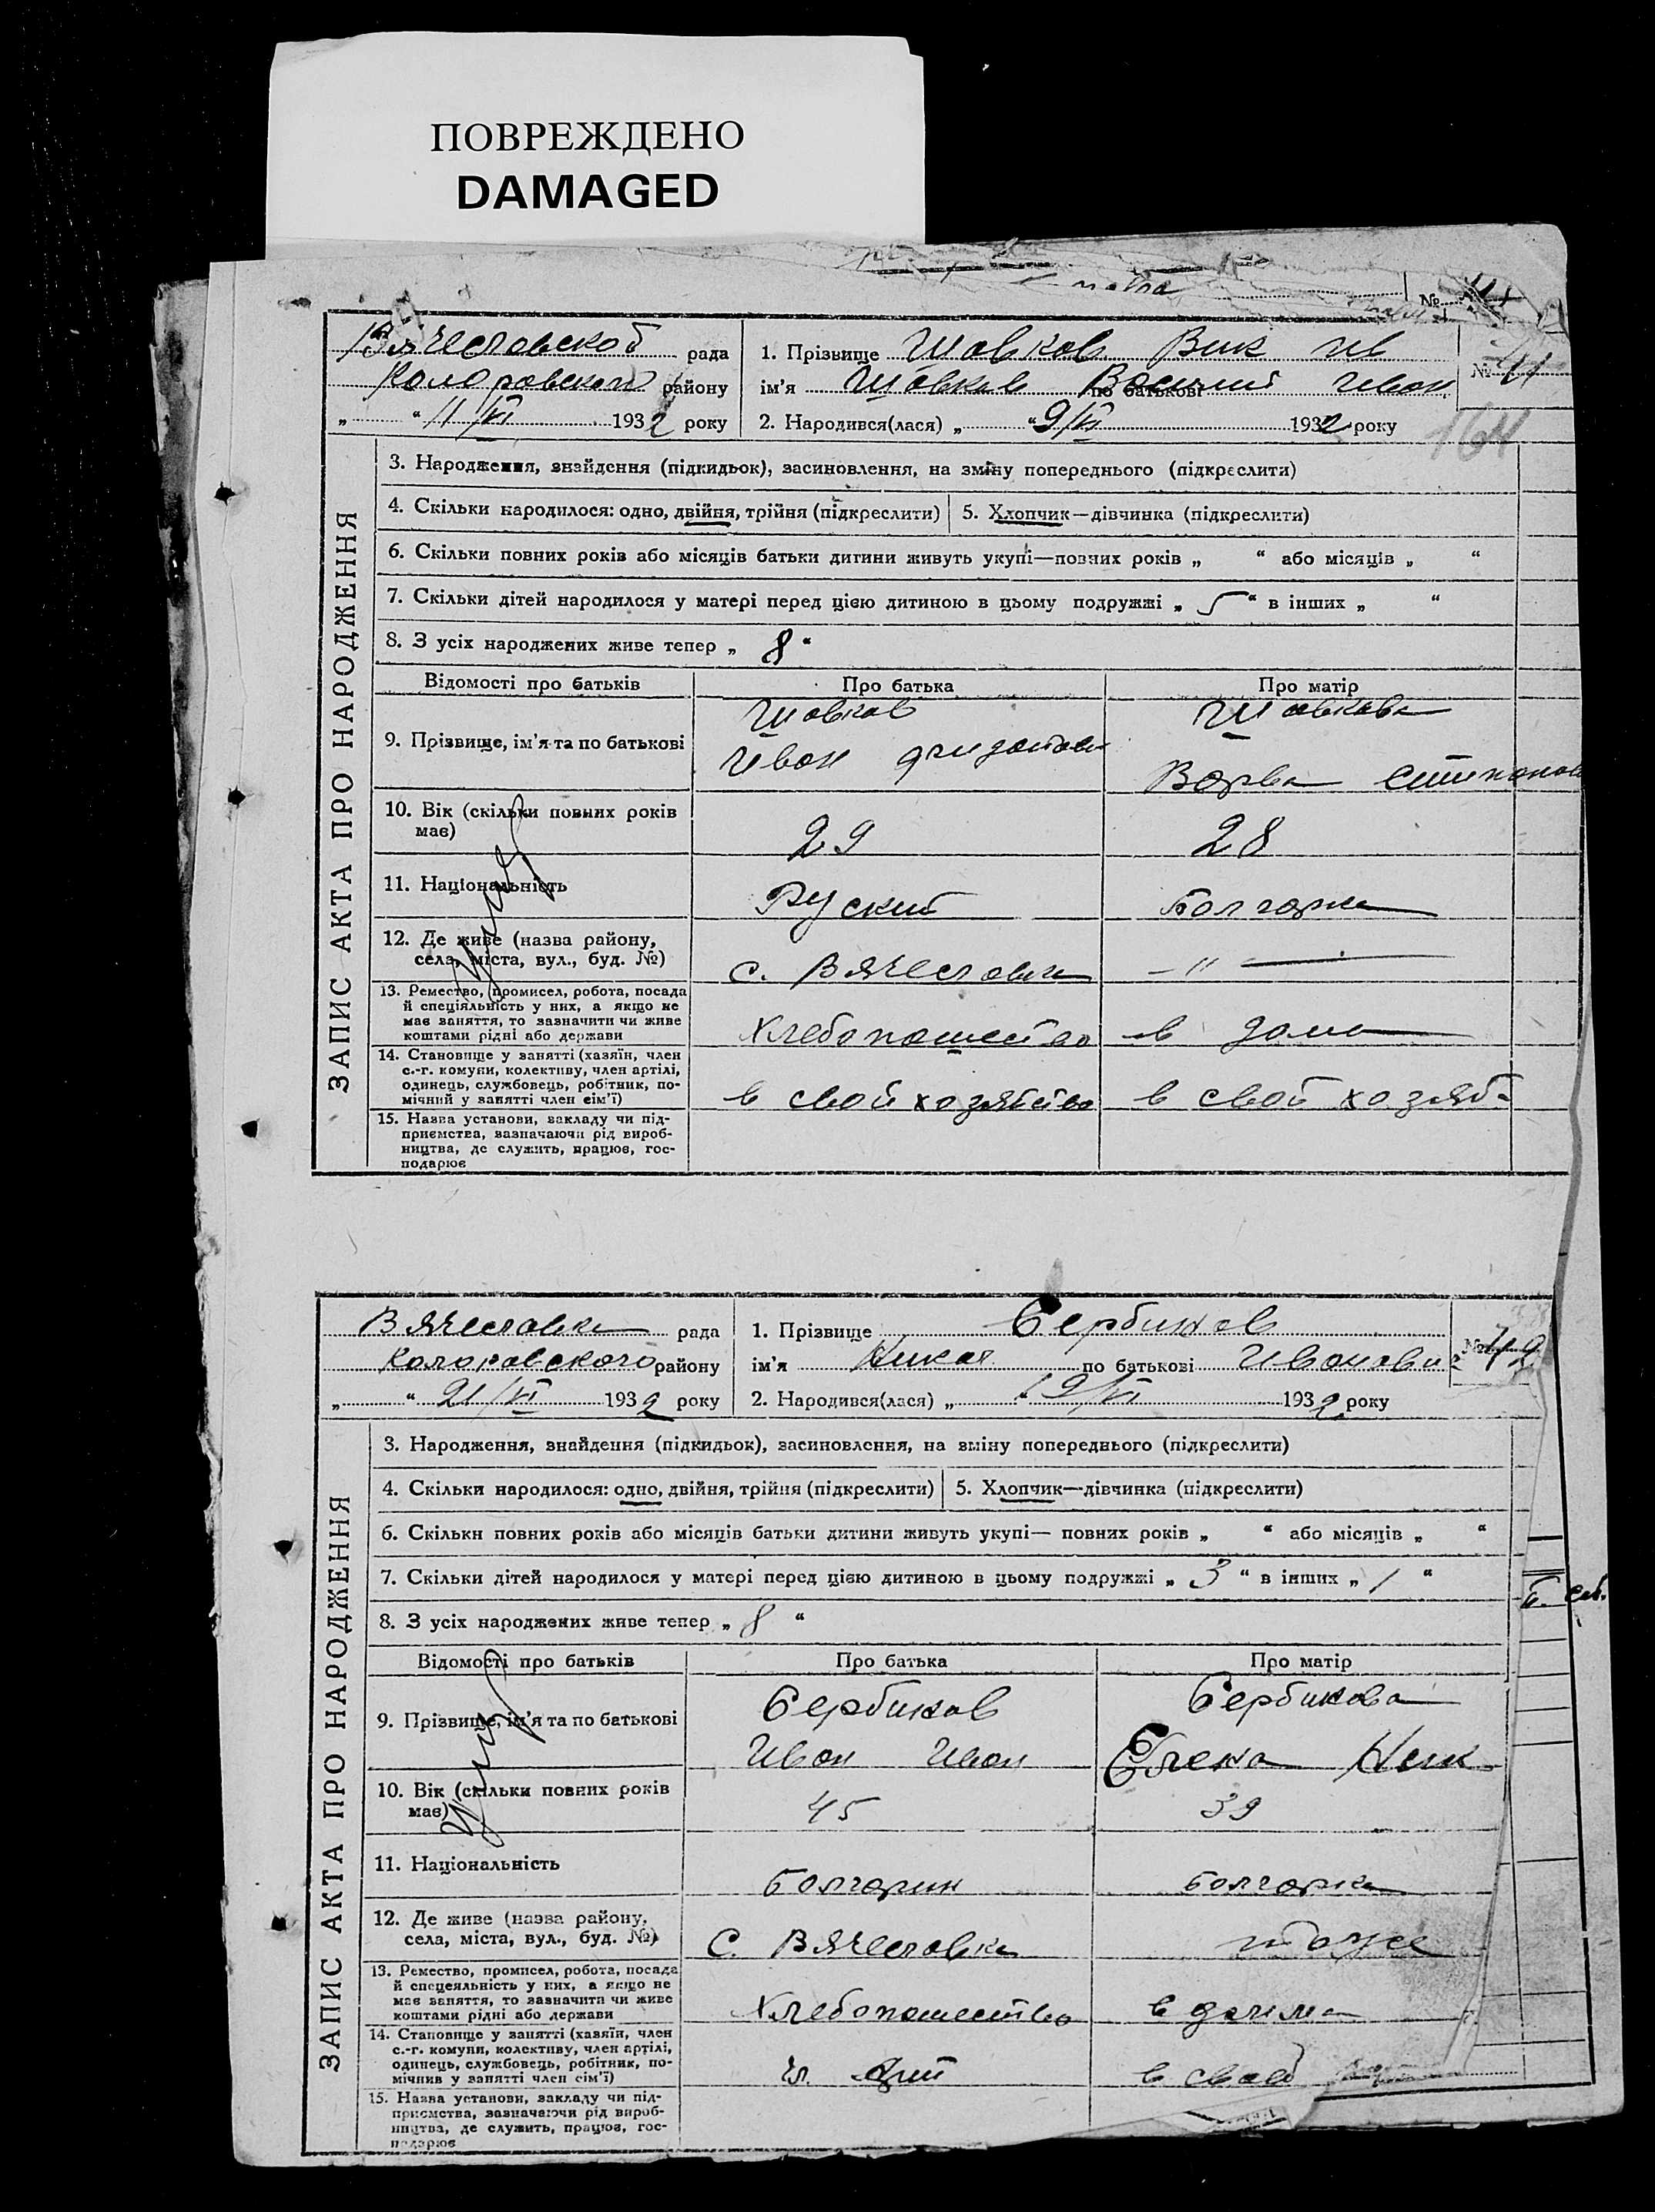 ПОВРЕЖДЕНО
DAMAGED
№
Вячеславской рада
Коларовского району
„ “ 11/VI 1932 року
1. Прізвище Шовков Вик Ив
ім'я Шовков Василий по батькові Иван
№ 41
2. Народився(лася) „ “ 9/VI 1932 року
164
ЗАПИС АКТА ПРО НАРОДЖЕННЯ
3. Народження, знайдення (підкидьок), засиновлення, на зміну попереднього (підкреслити)
4. Скільки народилося: одно, двійня, трійня (підкреслити) 5. Хлопчик—дівчинка (підкреслити)
6. Скільки повних років або місяців батьки дитини живуть укупі—повних років „ “ або місяців „ “
7. Скільки дітей народилося у матері перед цією дитиною в цьому подружжі „ 5 “ в інших „ “
8. З усіх народжених живе тепер „ 8 “
Відомості про батьків Про батька Про матір
9. Прізвище, ім'я та по батькові
Шовков
Ивон
Шовкова
Ворва Степонов
10. Вік (скільки повних років має) 29 28
11. Національність Руский Болгорка
12. Де живе (назва району, села, міста, вул., буд. №) с. Вячеславка —"—
13. Ремество, промисел, робота, посада
й спеціяльність у них, а якщо не
має заняття, то зазначити чи живе
коштами рідні або держави
Хлебопошество в дома
14. Становище у занятті (хазяїн, член
с.-г. комуни, колективу, член артілі,
одинець, службовець, робітник, по-
мічний у занятті член сім'ї)
в свой хозяйство в свой хозяй
15. Назва установи, закладу чи під-
приємства, зазначаючи рід вироб-
ництва, де служить, працює, гос-
подарює
Вячеславка рада
Коларовского району
„ “ 21/VI 1932 року
1. Прізвище Сербинов
ім'я Никол по батькові Ивонович
№ 42
2. Народився(лася) „ “ 19/VI 1932 року
ЗАПИС АКТА ПРО НАРОДЖЕННЯ
3. Народження, знайдення (підкидьок), засиновлення, на зміну попереднього (підкреслити)
4. Скільки народилося: одно, двійня, трійня (підкреслити) 5. Хлопчик—дівчинка (підкреслити)
6. Скільки повних років або місяців батьки дитини живуть укупі— повних років „ “ або місяців „ “
7. Скільки дітей народилося у матері перед цією дитиною в цьому подружжі „ 3 “ в інших „ 1 “
8. З усіх народжених живе тепер „ 8 “
Відомості про батьків Про батька Про матір
9. Прізвище, ім'я та по батькові
Сербинов
Ивон Ивон
Сербинова
Елена Ник
10. Вік (скільки повних років має) 45 39
11. Національність Болгорин Болгорка
12. Де живе (назва району, села, міста, вул., буд. №) С. Вячеславка тоже
13. Ремество, промисел, робота, посада
й спецеяльність у них, а якщо не
має заняття, то зазначити чи живе
коштами рідні або держави
Хлебопошество в дома
14. Становище у занятті (хазяїн, член
с.-г. комуни, колективу, член артілі,
одинець, службовець, робітник, по-
мічнив у занятті член сім'ї)
чл. в свой
15. Назва установи, закладу чи під-
приємства, зазначаючи рід вироб-
ництва, де служить, працює, гос-
подарює